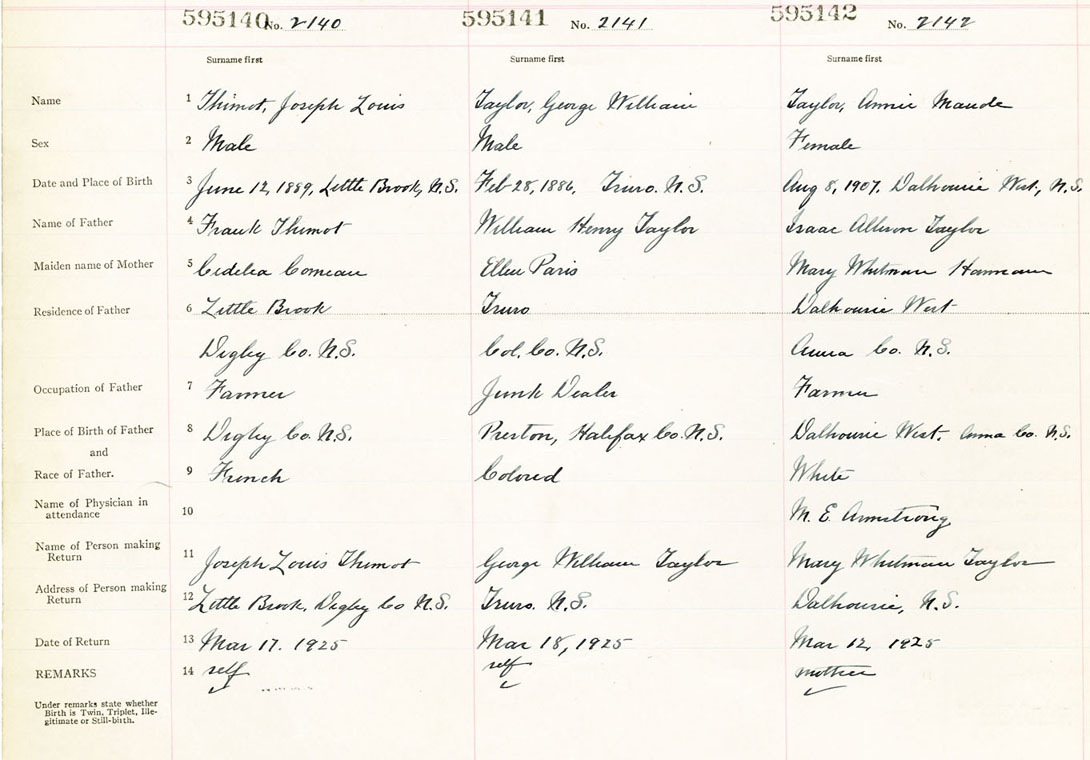 595140 No. 2140 595141 No. 2141 595142 No. 2142
Surname first Surname first Surname first
Name 1 Thimot, Joseph Louis Taylor, George William Taylor, Annie Maude
Sex 2 Male Male Female
Date and Place of Birth 3 June 12, 1889, Little Brook, N.S. Feb 28, 1886, Truro. N.S. Aug 8, 1907. Dalhousie West, N.S.
Name of Father 4 Frank Thimot William Henry Taylor Isaac Allison Taylor
Maiden name of Mother 5 Comeau Ellen Paris Mary Whitman Hannam
Residence of Father 6 Little Brook Truro Dalhousie West
Digby Co. N.S. Col. Co. N.S. Anna Co. N.S.
Occupation of Father 7 Farmer Junk Dealer Farmer
Place of Birth of Father 8 Digby Co. N.S. Preston, Halifax Co. N.S. Dalhousie West. Anna Co. N.S.
and
Race of Father. 9 French Colored White
Name of Physician in
attendance 10 M. E. Armstrong
Name of Person making
Return 11 Joseph Louis Thimot George William Taylor Mary Whitman Taylor
Address of Person making
Return 12 Little Brook, Digby Co N.S. Truro. N.S. Dalhousie, N.S.
Date of Return 13 Mar 17. 1925 Mar 18, 1925 Mar 12, 1925
REMARKS 14 self self mother
Under remarks state whether
Birth is Twin, Triplet, Ille-
gitimate or Still-birth.